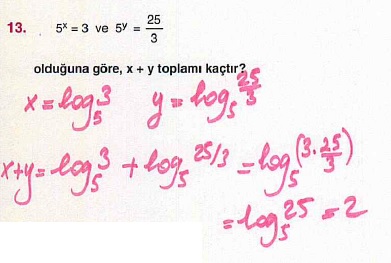 13. 5ˣ = 3 ve 5ʸ = 25/3
olduğuna göre, x + y toplamı kaçtır?
x = log₅3 y = log₅25/3
x+y = log₅3 + log₅25/3 = log₅(3·25/3)
= log₅25 = 2